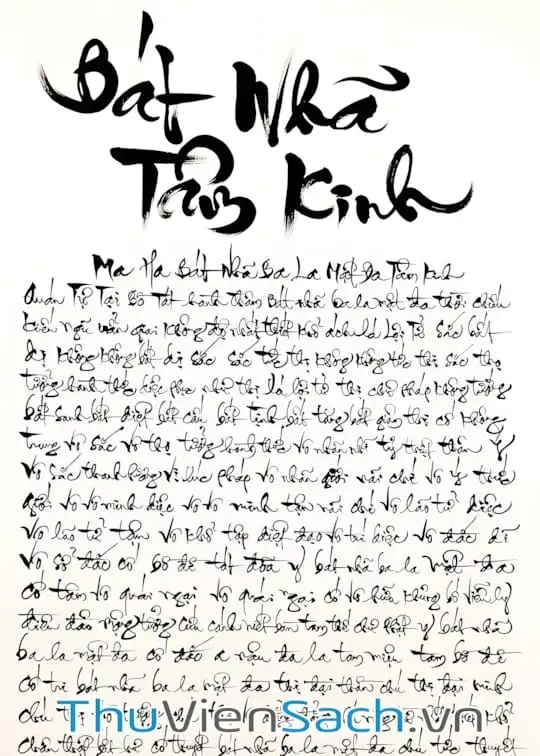 Bát Nhã
Tâm Kinh
Ma Ha Bát Nhã Ba La Mật Đa Tâm Kinh
Quán Tự Tại Bồ Tát hành thâm Bát nhã ba la mật đa thời chiếu
kiến ngũ uẩn giai không độ nhất thiết khổ ách Xá Lợi Tử Sắc bất
dị không không bất dị sắc sắc tức thị không không tức thị sắc thọ
tưởng hành thức diệc phục như thị Xá lợi tử thị chư pháp không tướng
bất sanh bất diệt bất cấu bất tịnh bất tăng bất giảm thị cố không
trung vô sắc vô thọ tưởng hành thức vô nhãn nhĩ tỷ thiệt thân ý
vô sắc thanh hương vị xúc pháp vô nhãn giới nãi chí vô ý thức
giới vô vô minh diệc vô vô minh tận nãi chí vô lão tử diệc
vô lão tử tận vô khổ tập diệt đạo vô trí diệc vô đắc dĩ
vô sở đắc cố bồ đề tát đỏa y bát nhã ba la mật đa
cố tâm vô quái ngại vô quái ngại cố vô hữu khủng bố viễn ly
điên đảo mộng tưởng cứu cánh niết bàn tam thế chư Phật y bát nhã
ba la mật đa cố đắc a nậu đa la tam miệu tam bồ đề
cố tri bát nhã ba la mật đa thị đại thần chú thị đại minh
chú thị vô
ThuVienSach.vn